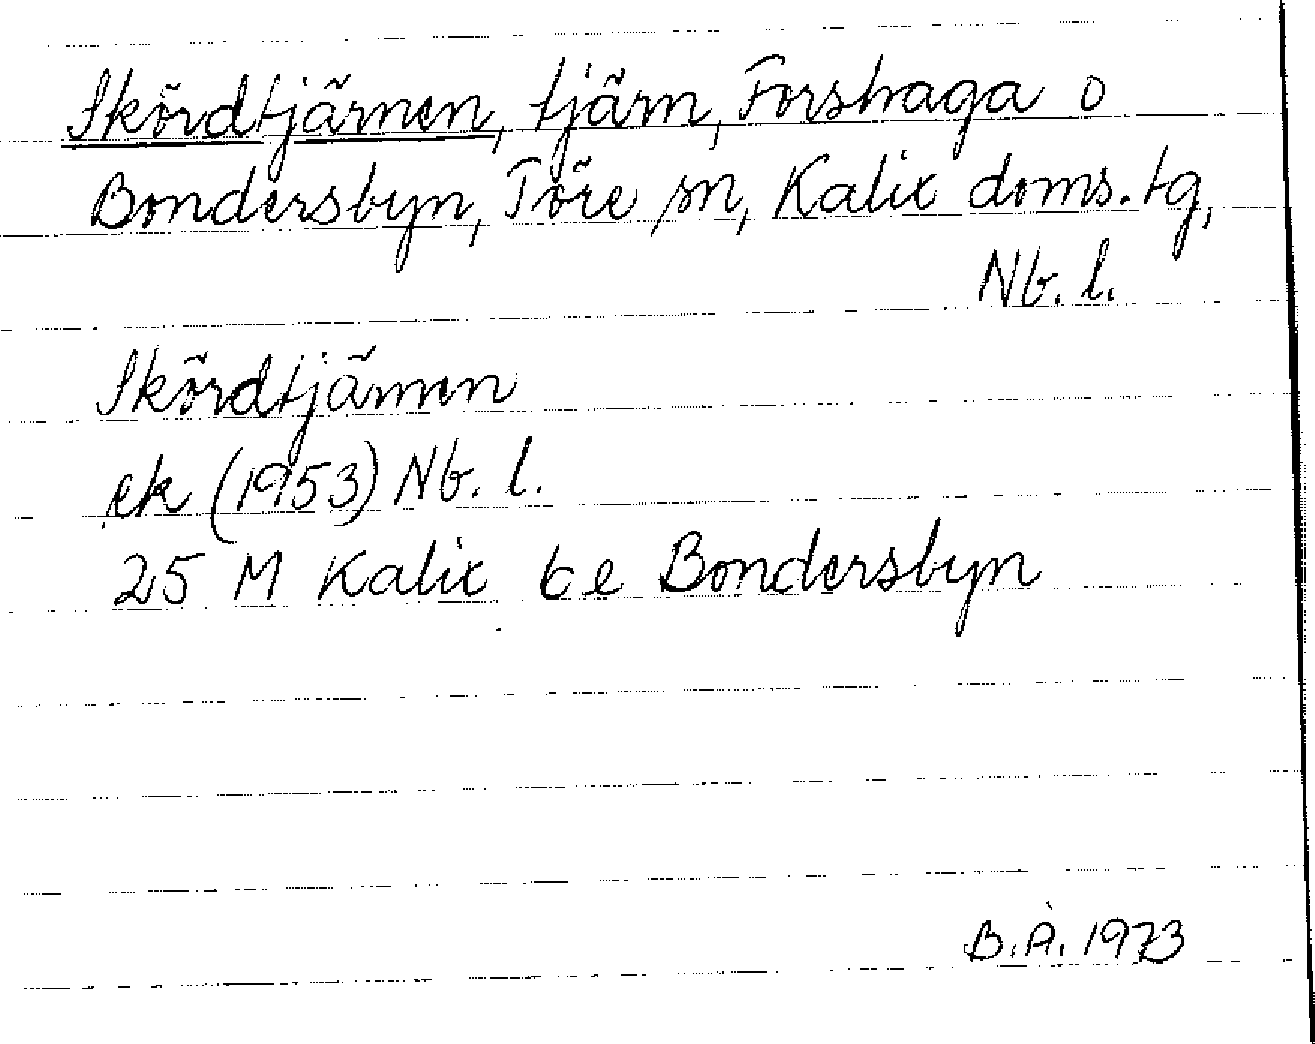 Skördtjärnen, tjärn, Forshaga o
Bondersbyn, Töre sn, Kalix doms.tg,
Nb. l.
Skördtjärnen
ek (1953) Nb. l.
25 M Kalix 6 e Bondersbyn
B.Å. 1973